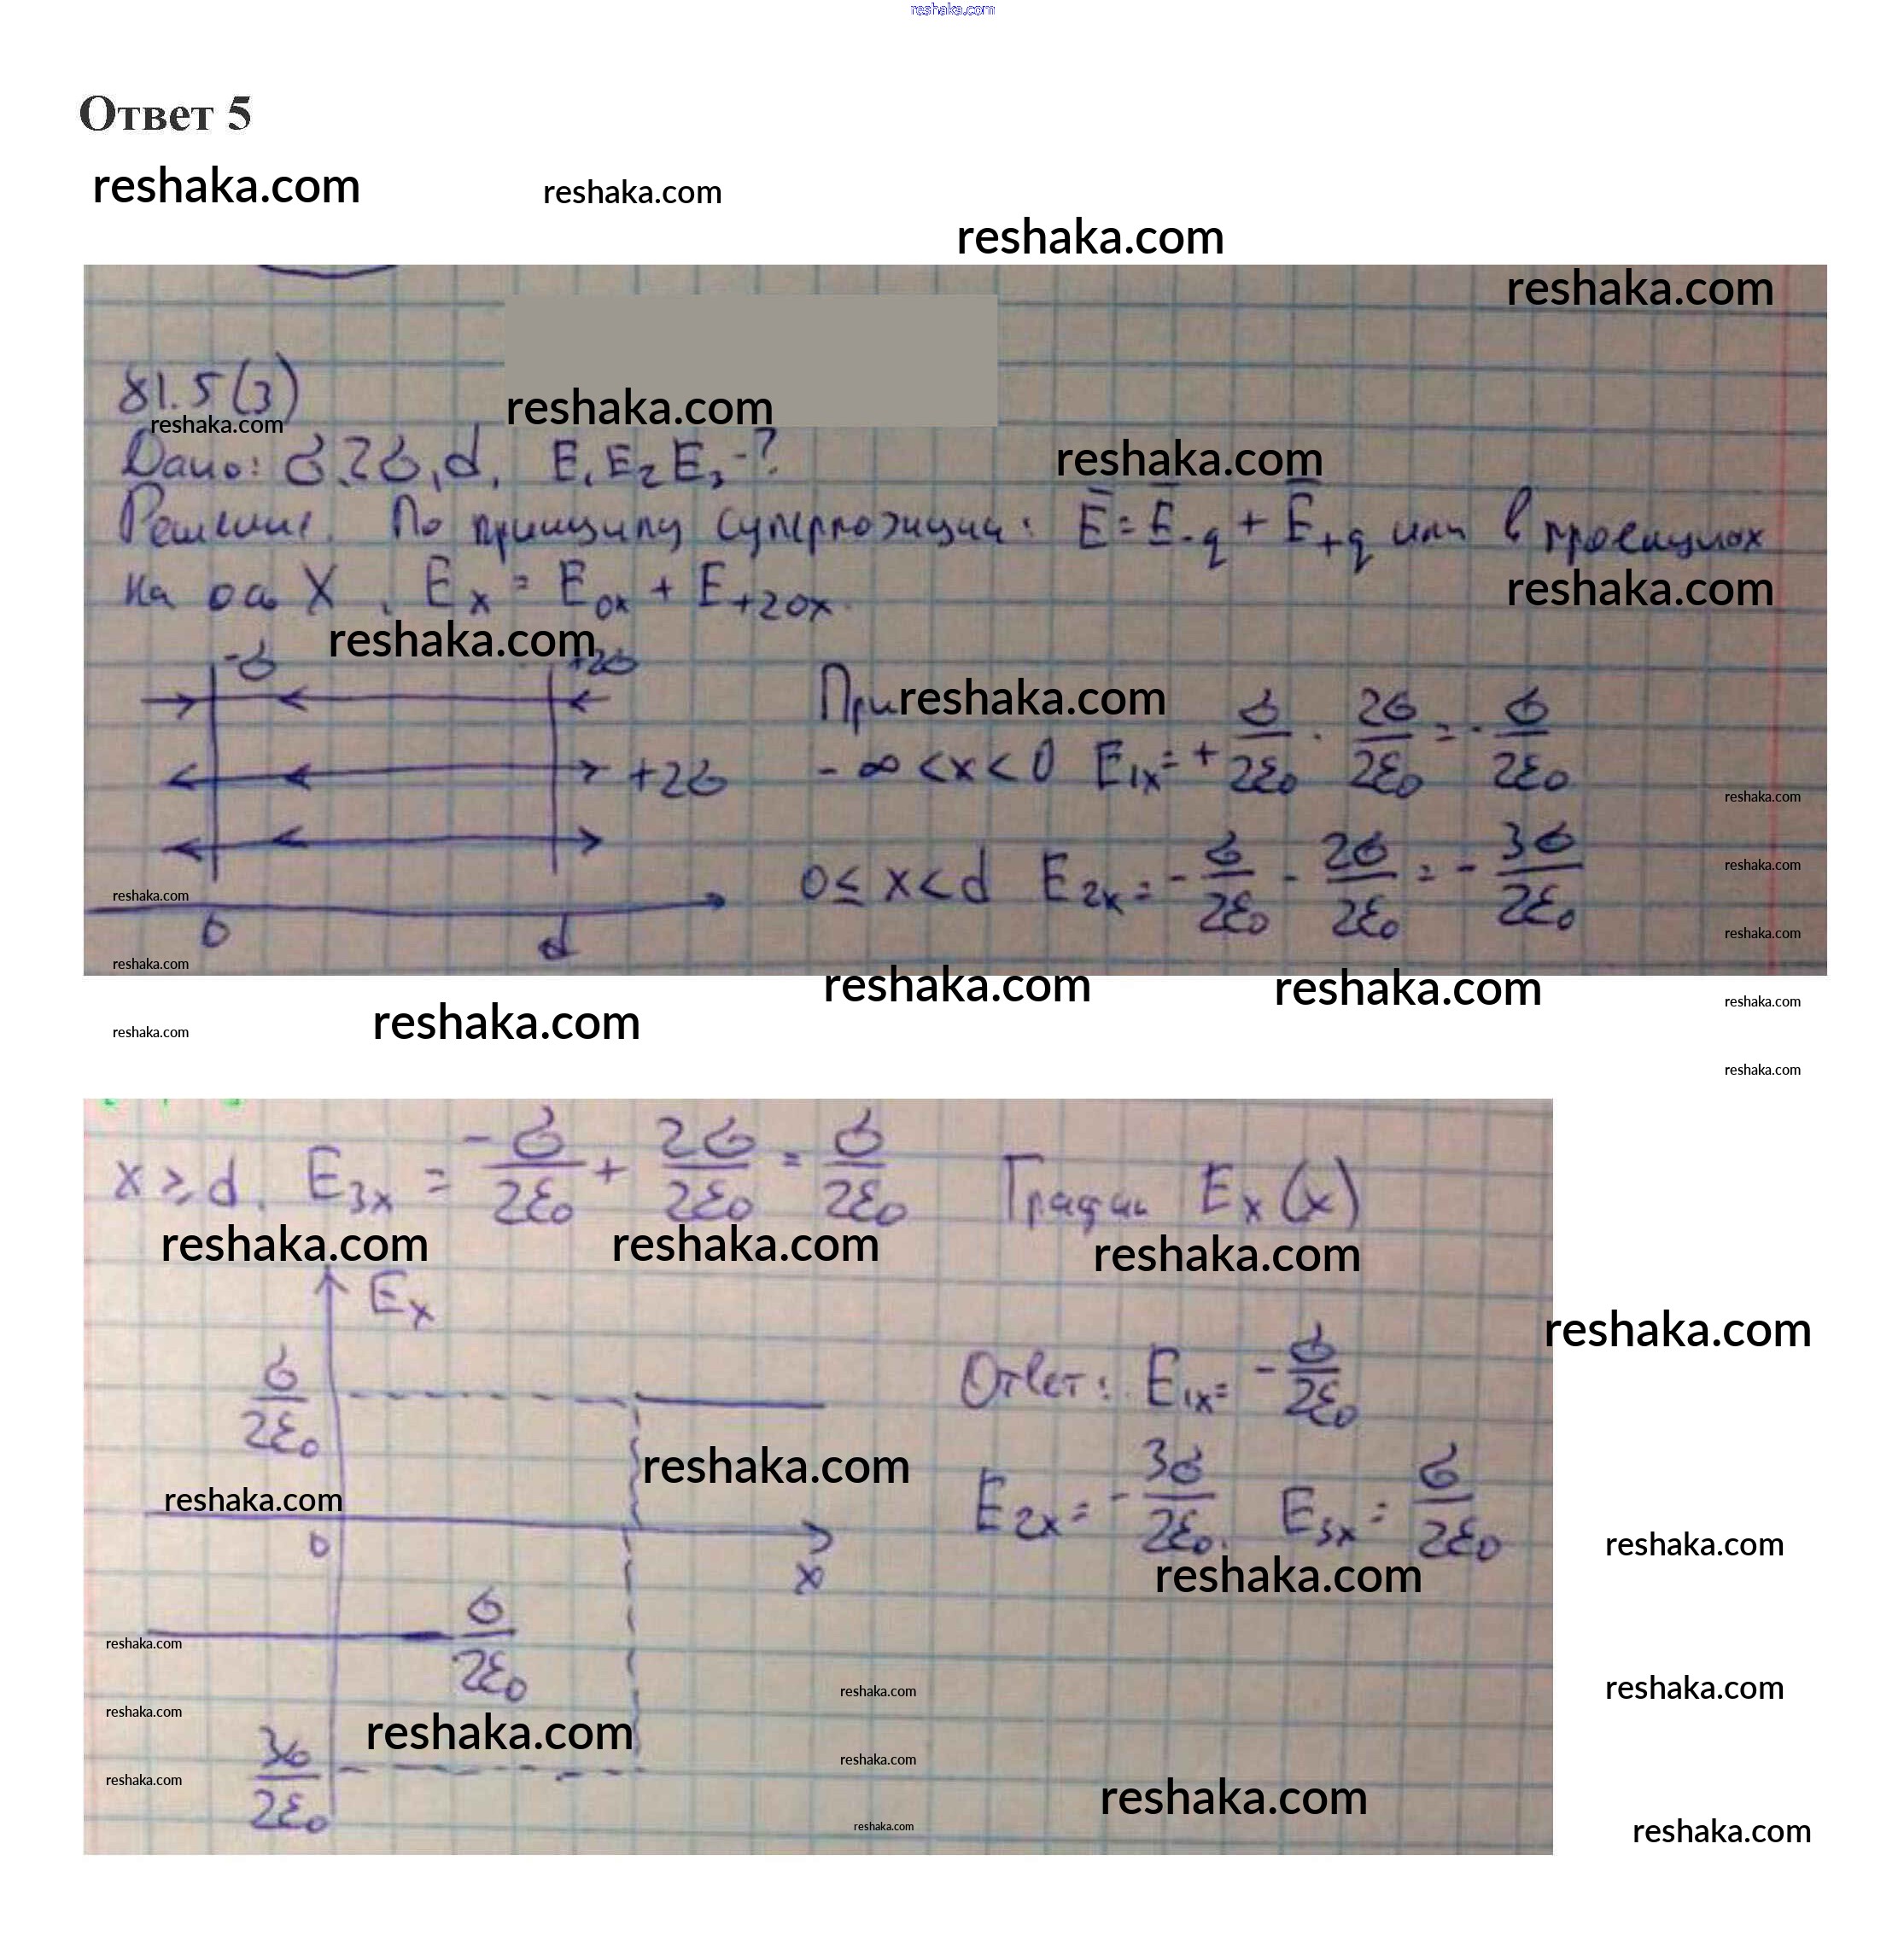 reshaka.com
Ответ 5
reshaka.com reshaka.com
reshaka.com
reshaka.com
81.5(3)
reshaka.com reshaka.com
Дано: б, 2б, d, E₁ E₂ E₃ -?
reshaka.com
Решение. По принципу суперпозиции: E̅ = E̅-q + E̅+q или в проекциях
на ось X, Eₓ = E₀ₓ + E₊₂₀ₓ
reshaka.com
reshaka.com
-б +2б
При
reshaka.com
-∞ < x < 0 E₁ₓ = + б/2ε₀ · 2б/2ε₀ = - б/2ε₀
+2б
reshaka.com
0 ≤ x < d E₂ₓ = - б/2ε₀ - 2б/2ε₀ = - 3б/2ε₀
reshaka.com
reshaka.com
0 d
reshaka.com
reshaka.com
reshaka.com reshaka.com
reshaka.com
reshaka.com reshaka.com
reshaka.com
x ≥ d. E₃ₓ = -б/2ε₀ + 2б/2ε₀ = б/2ε₀ График Eₓ(x)
reshaka.com reshaka.com reshaka.com
Eₓ
reshaka.com
б/2ε₀
Ответ: E₁ₓ = - б/2ε₀
reshaka.com
reshaka.com
E₂ₓ = - 3б/2ε₀. E₃ₓ = б/2ε₀
0
x
reshaka.com
reshaka.com
б/2ε₀
reshaka.com
reshaka.com
reshaka.com
reshaka.com
reshaka.com
3б/2ε₀
reshaka.com
reshaka.com
reshaka.com
reshaka.com
reshaka.com